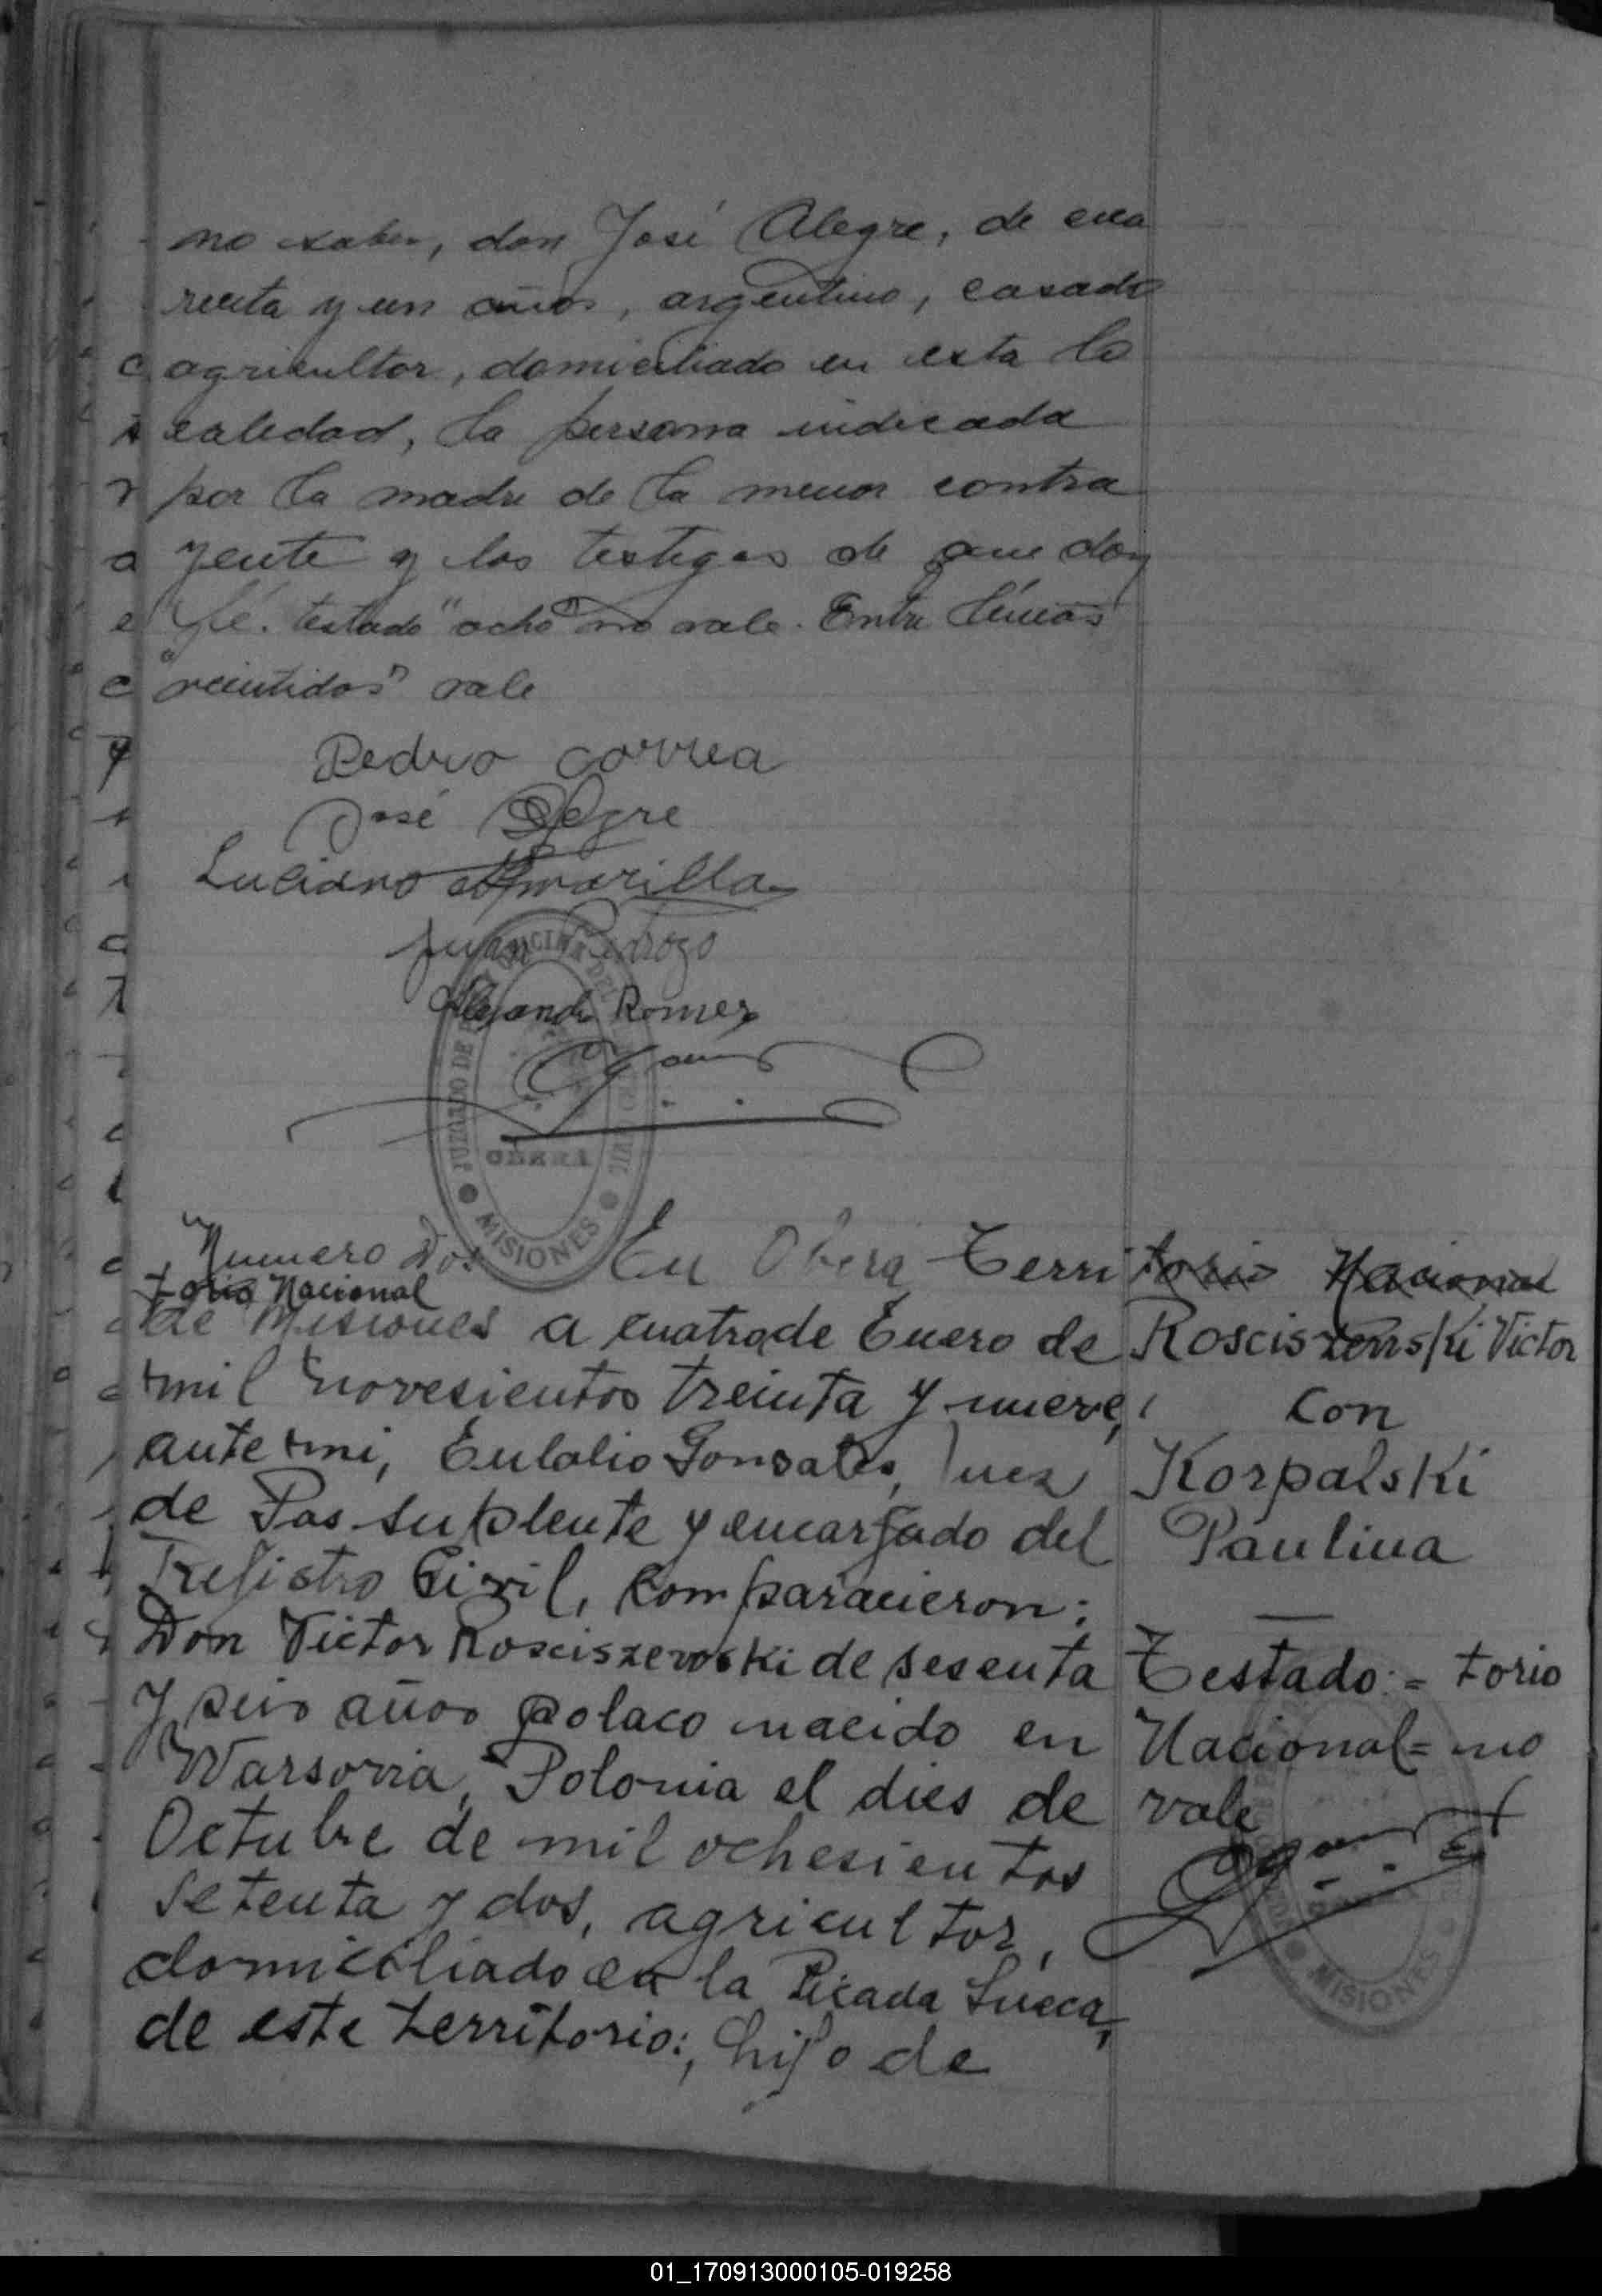 no saber, don José Alegre, de cua
renta y un años, argentino, casado
agricultor, domiciliado en esta lo
calidad, la persona indicada
por la madre de la menor contra
yente y los testigos de que doy
fé. testado "ocho" no vale. Entre líneas
"veintidos" vale
Pedro Correa
José Alegre
Luciano Amarilla
Juan Pedrozo
Alejandro Romer
JUZGADO DE
OBERA
MISIONES
Numero Dos En Oberá Territorio Nacional
torio Nacional
de Misiones a cuatro de Enero de
mil novesientos treinta y nueve,
ante mi, Eulalio Gonsales, Juez
de Pas suplente y encargado del
Registro Civil, comparacieron:
Don Victor Rosciszewski de sesenta
y seis años polaco nacido en
Warsovia, Polonia el dies de
Octubre de mil ochesientos
setenta y dos, agricultor,
domiciliado en la Picada Sueca,
de este territorio:, hijo de
Rosciszewski Victor
Con
Korpalski
Paulina
Testado:= torio
Nacional= no
vale
MISIONES
01_170913000105-019258